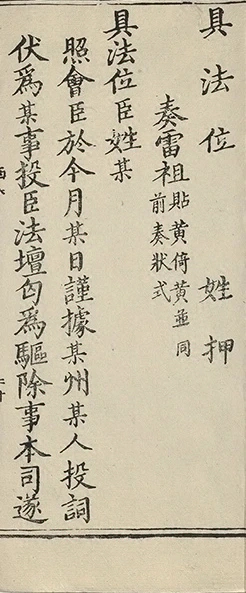 具法位　姓押
奏雷祖貼黃倚黃並同
前奏狀式
具法位臣姓某
照會臣於今月某日謹據某州某人投詞
伏爲某事投臣法壇匄爲驅除事本司遂